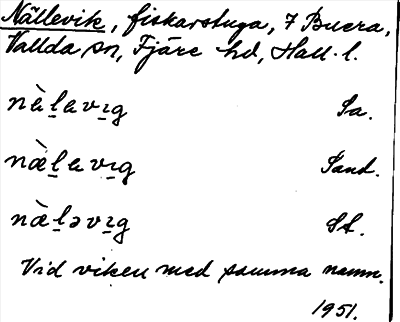 Nällevik, fiskarstuga, 7 Buera,
Vallda sn, Fjäre hd, Hall. l.
nä̀l̠av̠ıg Sa.
næ̀l̠av̠ıg Sand.
næ̀l̠əv̠ıg St.
Vid viken med samma namn.
1951.